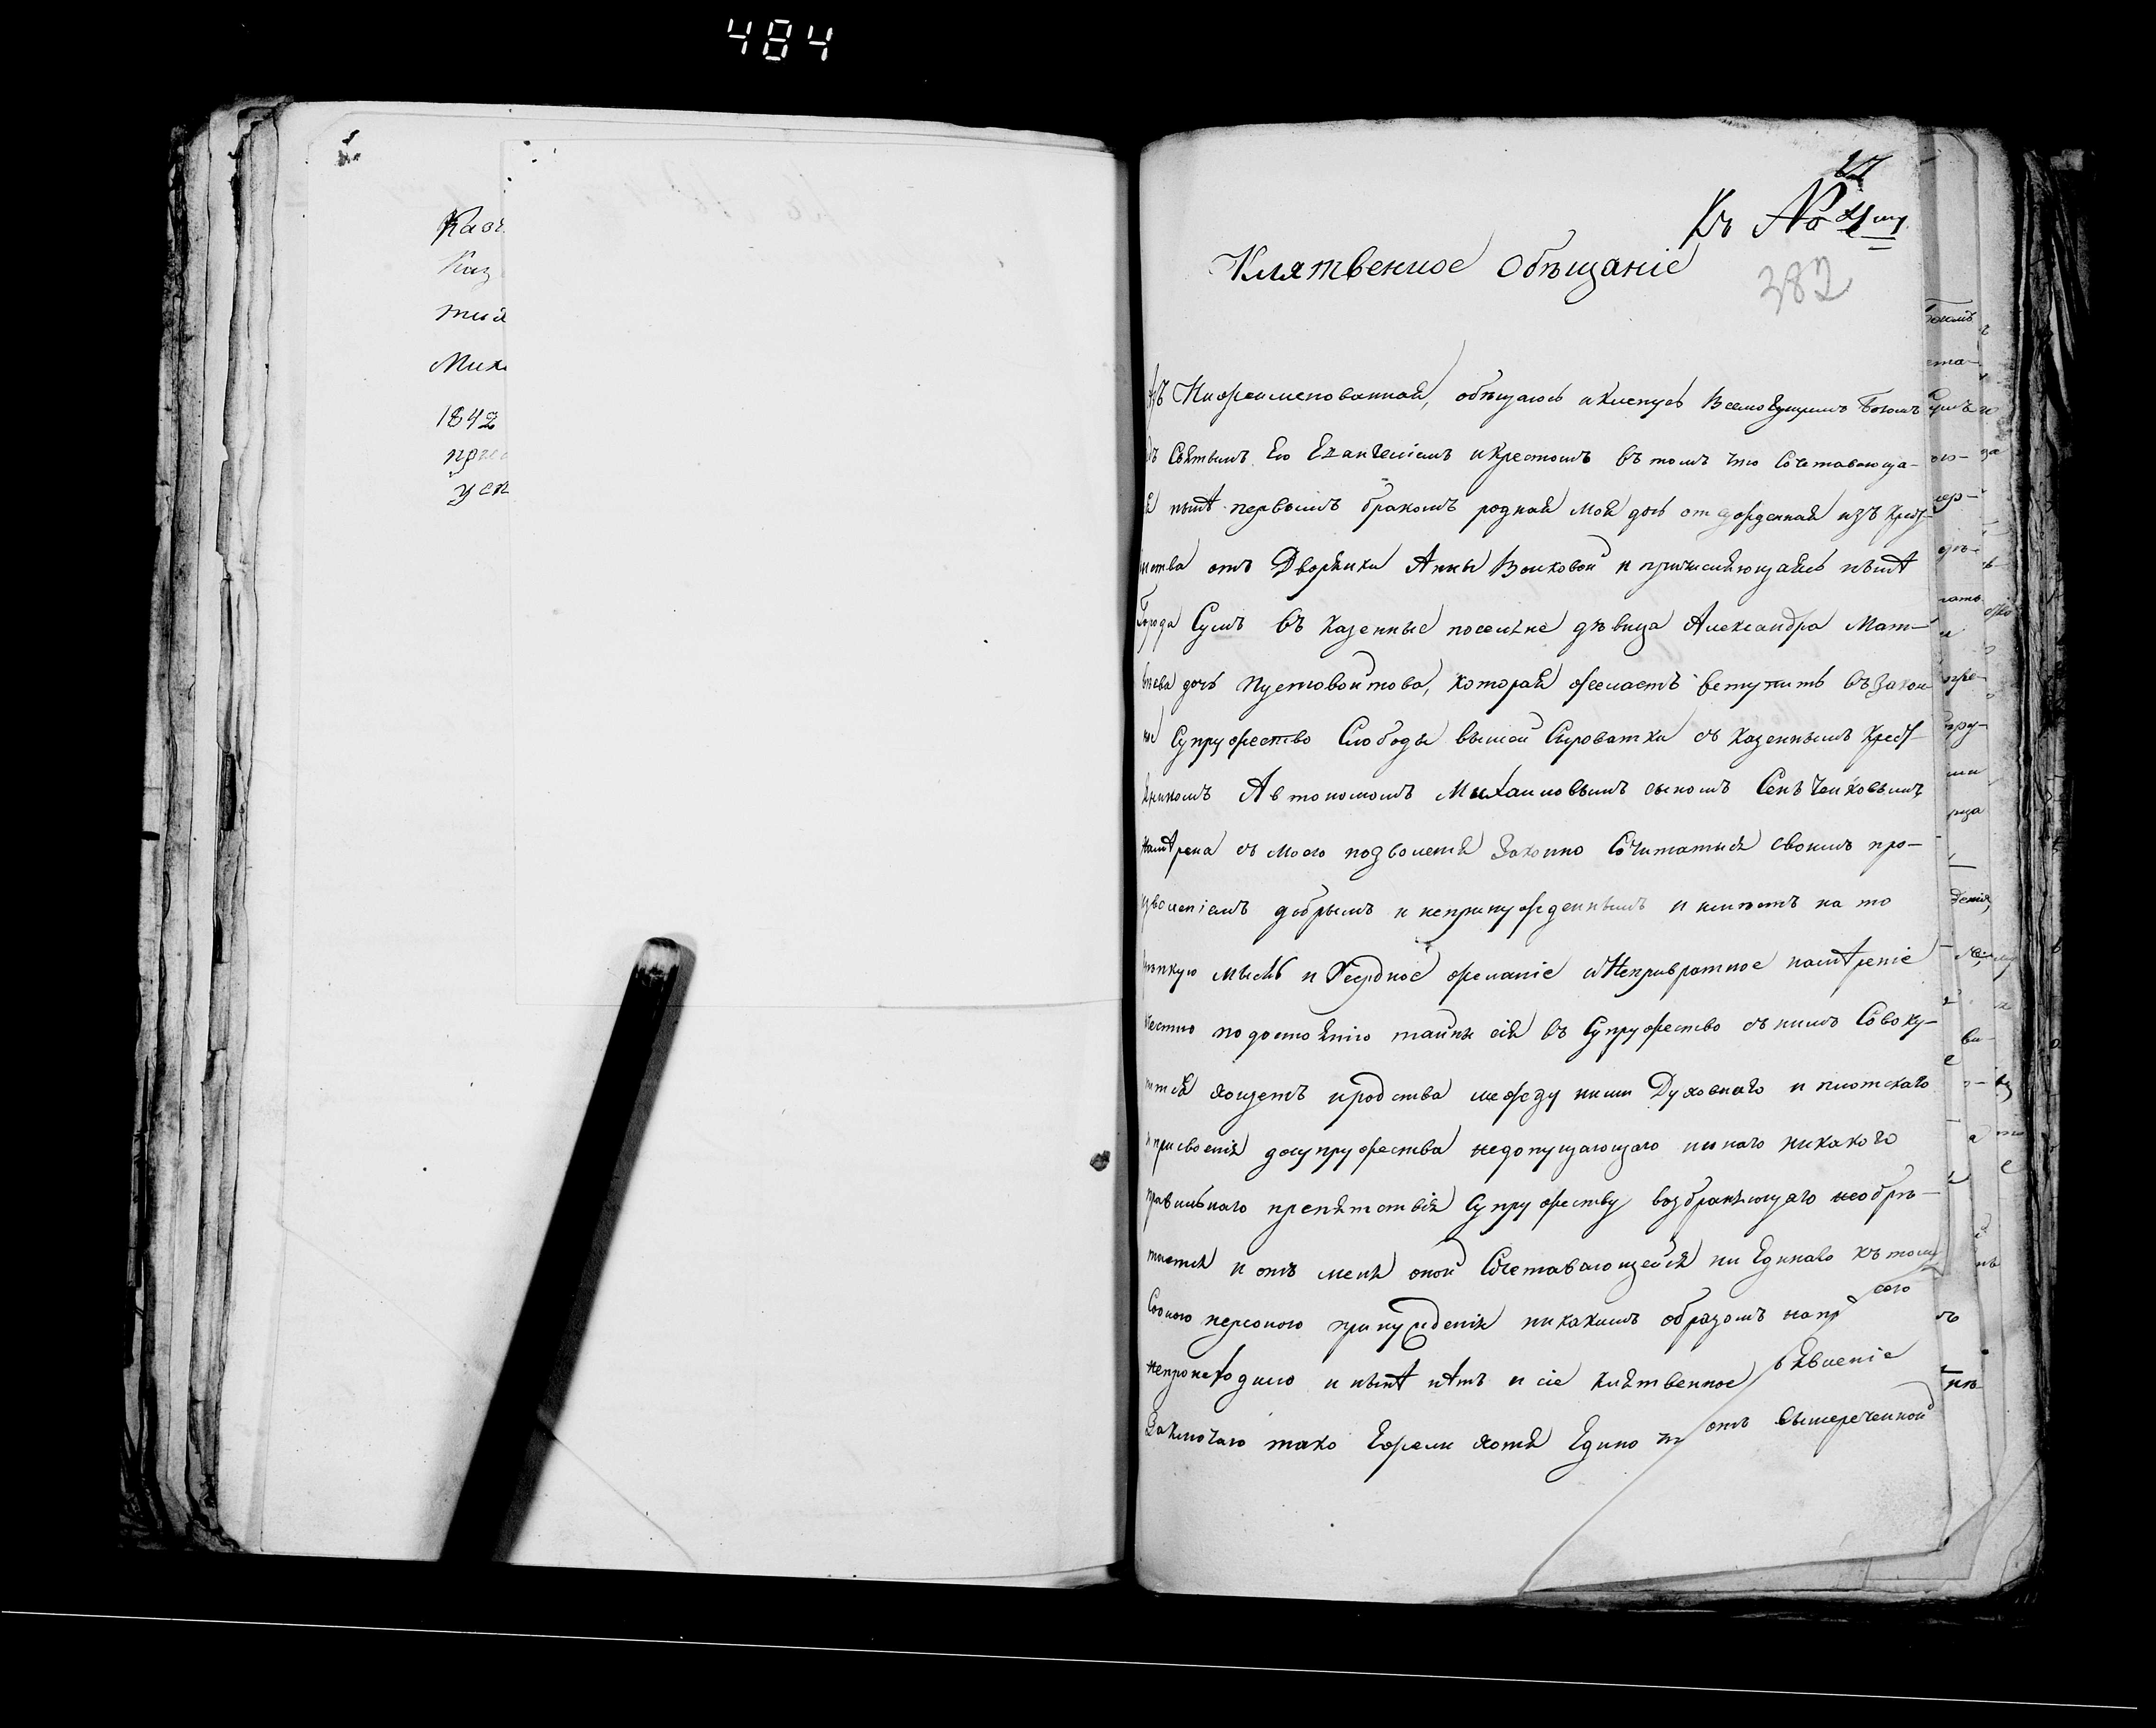 484
Казе
Каз
тыя
Миха
1842
при
уєп
Къ № 4му
Клятвенное Обѣщаніе
382
Азъ Нижеименованная, обѣщаюсь и клянусь Всемогущимъ Богомъ
Святымъ Его Евангеліемъ и крестомъ въ томъ что Сочетавающа-
я нынѣ первымъ бракомъ родная моя дочь отхожденная изъ крестя-
нства отъ Дворянки Анны Волковой и причисляющаясь нынѣ
Города Сумъ въ казенные поселяне дѣвица Александра Мат-
вѣева дочь Пустовойтова, которая желаетъ вступить въ закон-
ное Супружество Слободы вышой Сыроватки съ казеннымъ крестя-
яниномъ Автономомъ Михайловымъ сыномъ
намѣрена съ моего позволенія Законно Сочитатися своимъ про-
изволеніемъ добрымъ и непринужденнымъ и имѣетъ на то
крѣпкую мысль и Усердное желаніе и Непривратное намѣреніе
честно по достоянію тайны сія въ Супружество съ нимъ Совоку-
питися хощетъ и родства между ними Духовнаго и плотскаго
и присвоенія до супружества недопущающаго инаго никакого
правильнаго препятствія Супружеству возбраняющаго необрѣ-
тается и отъ меня оной Сочетавающейся ни Единаго къ тому
принужденія никакимъ образомъ
непроисходило и нынѣ нѣтъ и сіе клятвенное
Заключаю тако Ежели хотя Едино отъ вышереченной